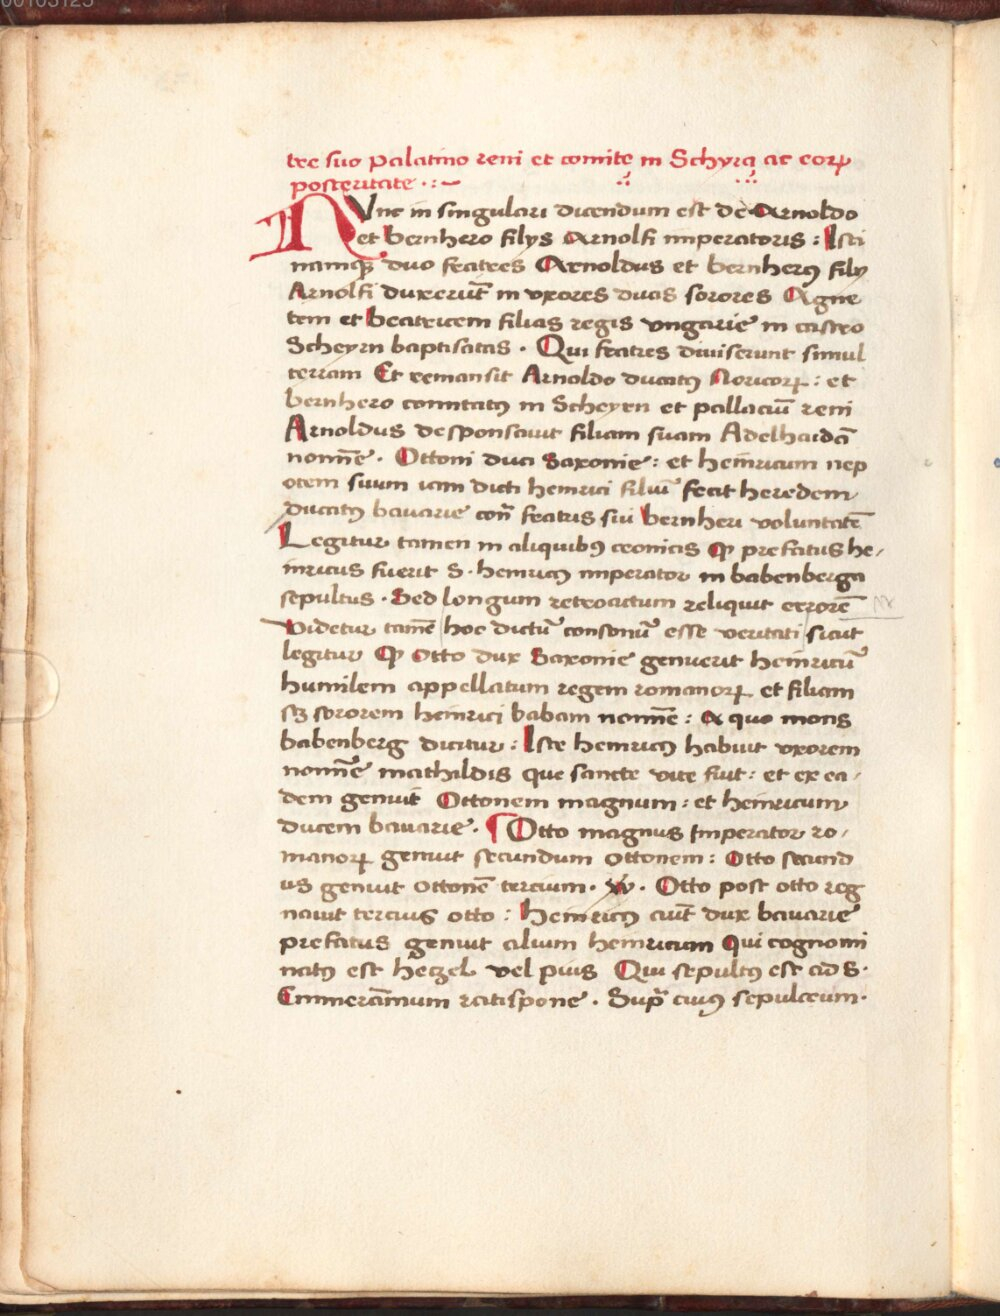 00103123
tre suo palatino reni et comite in Schyrn ac eorꝝ
posteritate
NVnc in singulari dicendum est de Arnoldo
et bernhero filys Arnolfi imperatoris : Isti
namqꝫ duo fratres Arnoldus et bernherꝰ fily
Arnolfi duxerūt in vxores duas sorores Agne
tem et beatricem filias regis vngarie in castro
Scheyrn baptisatas . Qui fratres diuiserunt simul
terram Et remansit Arnoldo ducatꝰ Noricorꝝ : et
bernhero comitatꝰ in Scheyrn et pallaciū reni
Arnoldus desponsauit filiam suam Adelhaidā
nomīe . Ottoni duci Saxonie : et heinricum nep
otem suum iam dicti heinrici filiū fecit heredem
ducatꝰ bauarie con̄ fratris sui bernheri voluntatē
Legitur tamen in aliquibꝰ cronicis ꝙ prefatus he-
inricus fuerit S. heinricꝰ imperator in babenberga
sepultus . Sed longum retroactum reliquit errorē
Videtur tamē hoc dictū consonū esse veritati sicut
legitur ꝙ Otto dux Saxonie genuerit heinricū
humilem appellatum regem romanorꝝ et filiam
scꝫ sororem heinrici babam nomīe : a quo mons
babenberg dicitur : Iste heinricꝰ habuit vxorem
nomīe mathildis que sancte vite fuit : et ex ea-
dem genuit Ottonem magnum : et heinricum
ducem bauarie . ¶ Otto magnus Imperator ro-
manorꝝ genuit secundum ottonem : Otto secund
us genuit ottonē tercium . . Otto post otto reg
nauit tercius otto : heinricꝰ aūt dux bauarie
prefatus genuit alium heinricum Qui cognomi
natꝰ est heczel vel pius Qui sepultꝰ est ad S.
Emmerāmum ratispone . Supͣ cuiꝰ sepulcrum .